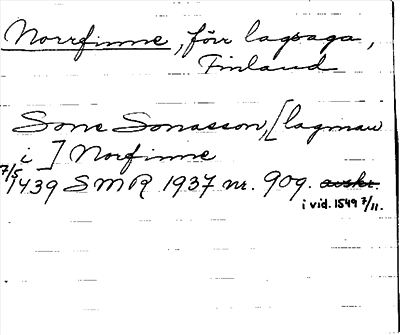 Norrfinne, förr lagsaga,
Finland
Sone Sonasson, [lagman
i] Norfinne
7/5 1439 SMR 1937 nr. 909. avskr.
i vid. 1549 7/11.